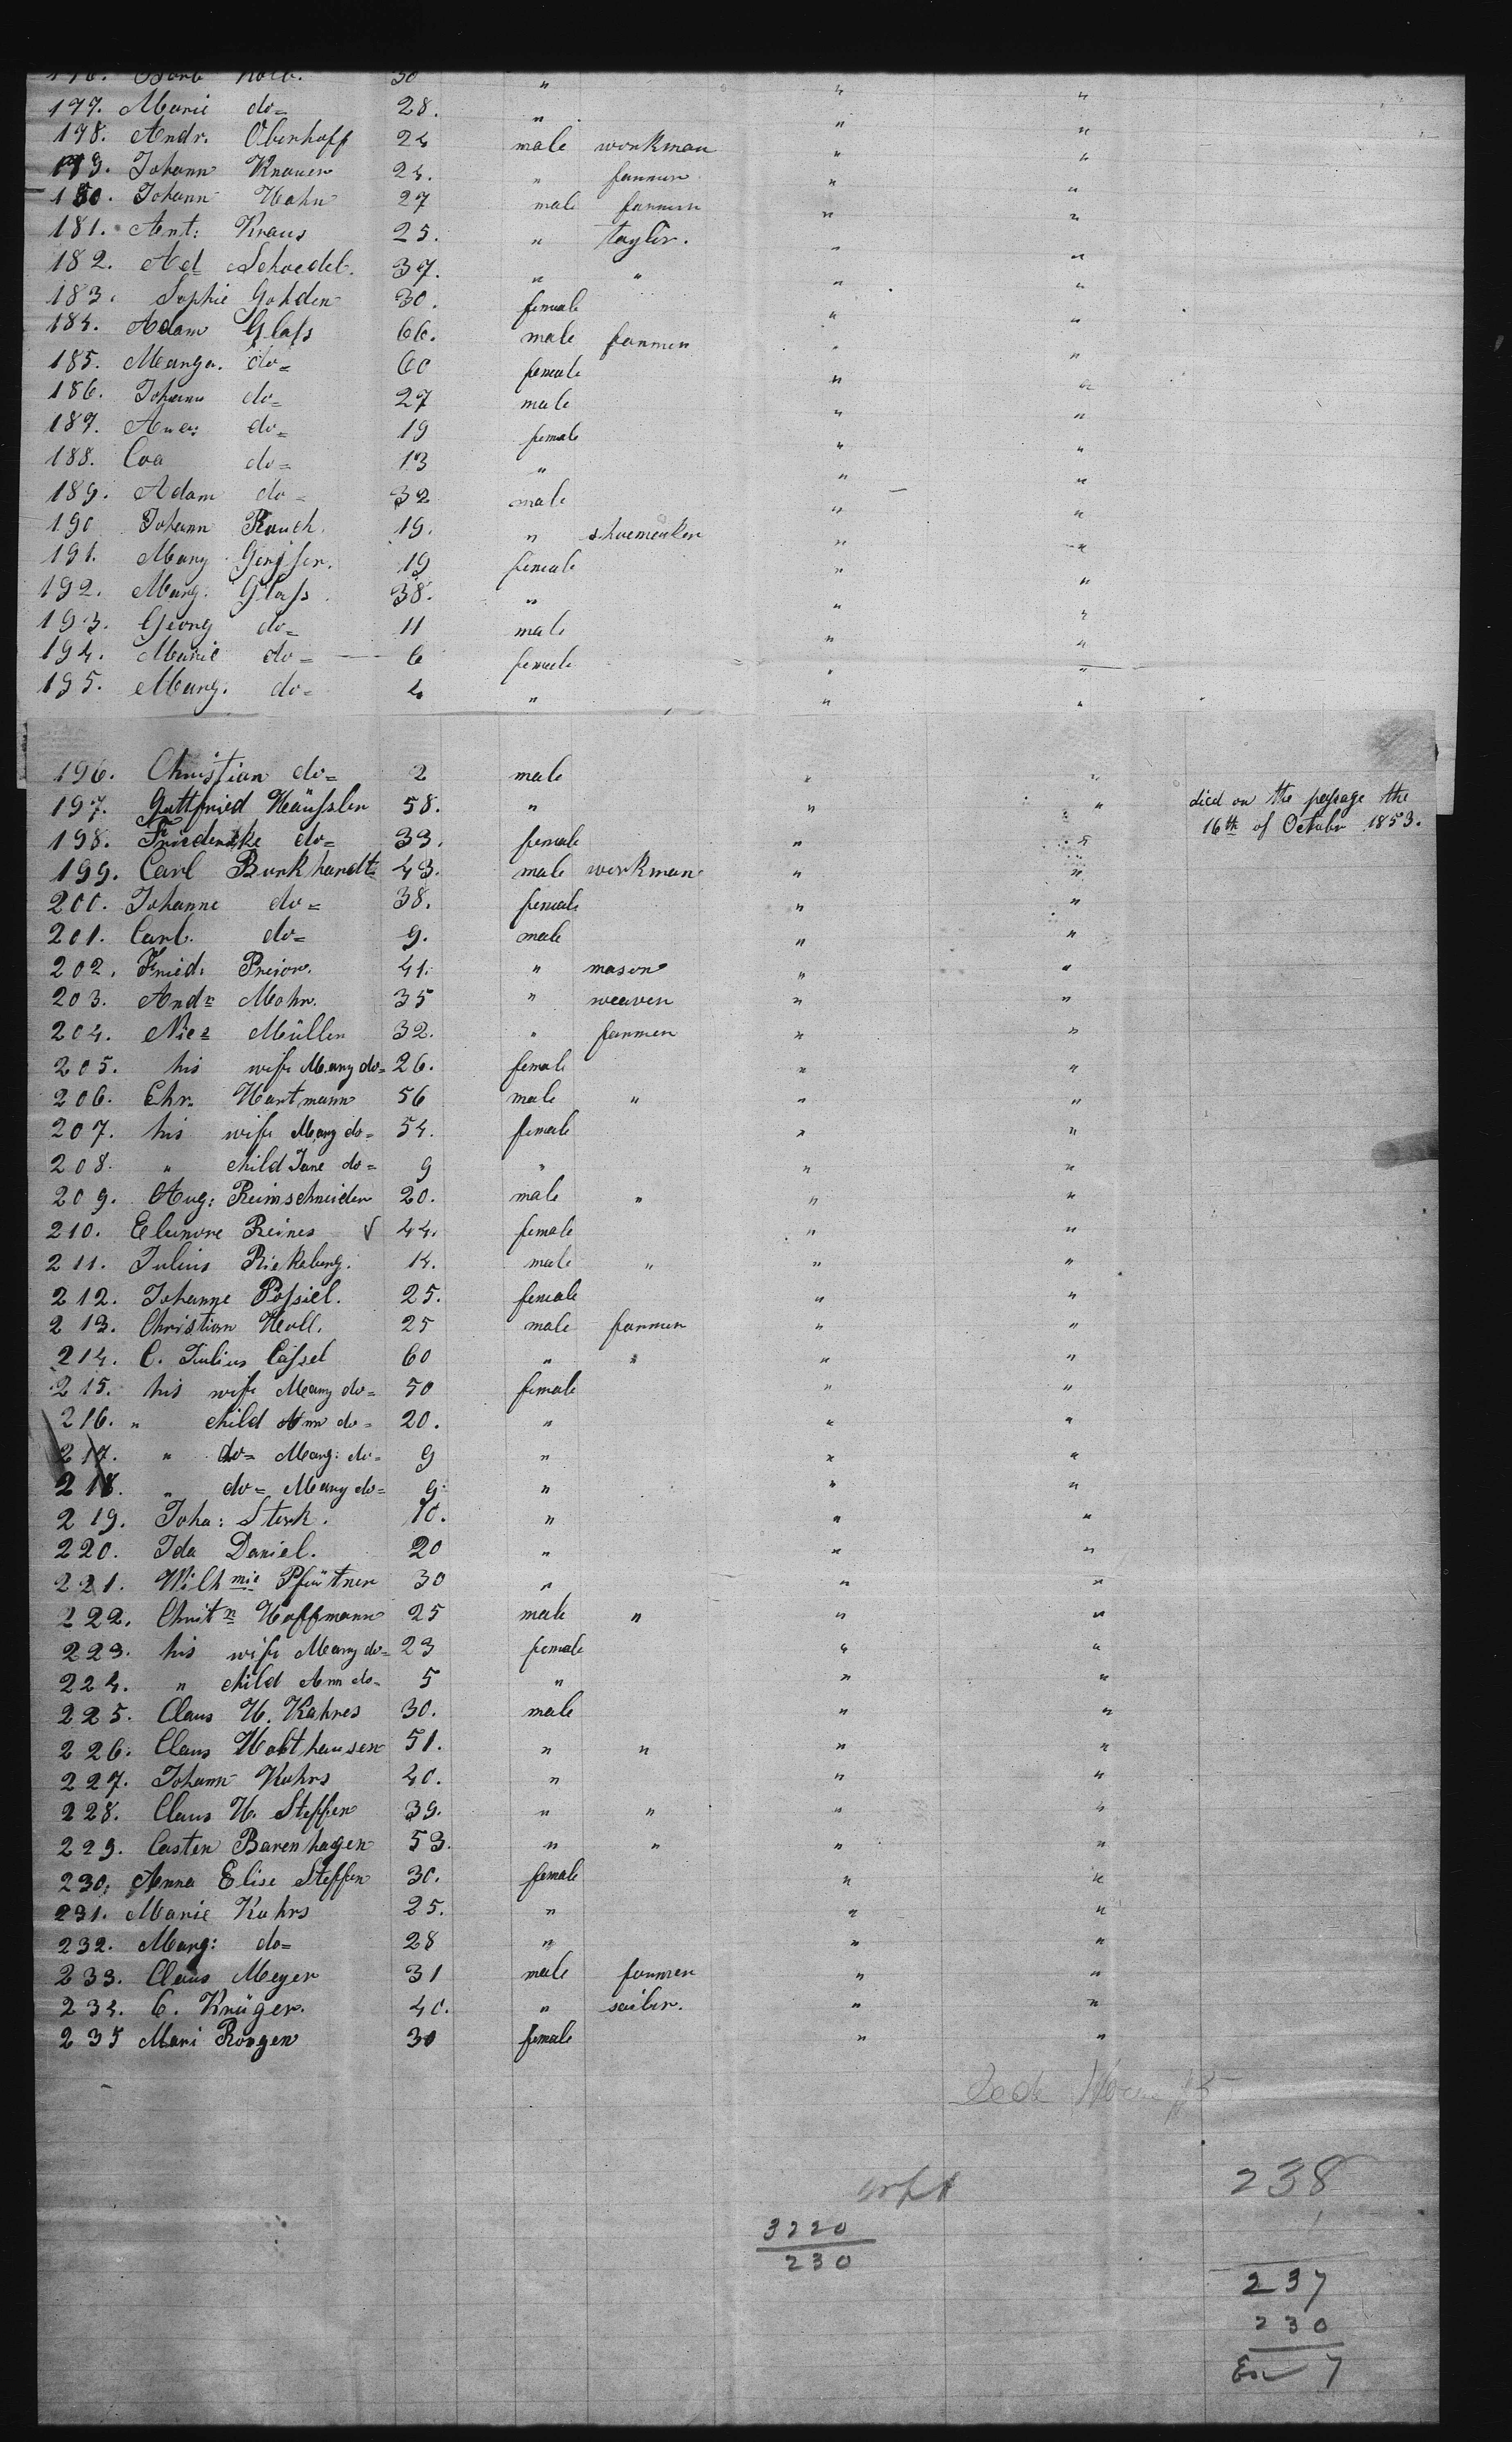 177. Marie do= 28. " " "
178. Andr. Oberhoff 24 male workman " "
179. Johann Knauer 24. " farmer " "
180. Johann Hahn 27 male farmer " "
181. Ant: Kraus 25. " taylor. " "
182. Ad Schoedel. 37. " " " "
183. Sophie Gohden 30. female " "
184. Adam Glass 66. male farmer " "
185. Marga. do= 60 female " "
186. Johann do= 27 male " "
187. do= 19 female " "
188. do= 13 " " "
189. Adam do= 32 male " "
190 Johann Rauch. 19. " shoemaker " "
191. Mary 19 female " "
192. Marg. Glass. 38. " " "
193. Georg do= 11 male " "
194. Marie do= 6 female " "
195. Marg. do= 4 " " "
196. Christian do= 2 male " "
197. Gottfried Häussler 58. " " " died on the passage the
16th of October 1853.
198. Friedericke do= 33. female " "
199. Carl Burkhardt 43. male workman " "
200. Johanne do= 38. female " "
201. Carl. do= 9. male " "
202. Fried: Preior. 41. " mason " "
203. Andr Mohr. 35 " weaver " "
204. Nic= Müller 32. " farmer " "
205. his wife Mary do= 26. female " "
206. Chr. Hartmann 56 male " " "
207. his wife Mary do= 54. female " "
208. " child Jane do= 9 " " "
209. Aug: Reimschneider 20. male " " "
210. Elenore Reines 44. female " "
211. Julius Riekeberg. 14. male " " "
212. Johanne Possiel. 25. female " "
213. Christian Holl. 25 male farmer " "
214. C. Julius Cassel 60 " " " "
215. his wife Mary do= 50 female " "
216. " child Ann do= 20. " " "
217. " do= Marg: do= 9 " " "
218. " do= Mary do= 9. " " "
219. Joha: Sterk. 10. " " "
220. Ida Daniel. 20 " " "
221. Wilhmie Pfürtner 30 " " "
222. Christn Hoffmann 25 male " " "
223. his wife Mary do= 23 female " "
224. " child Ann do= 5 " " "
225. Claus H. Kahres 30. male " "
226. Claus Holthausen 51. " " " "
227. Johann Kahrs 40. " " "
228. Claus H. Steffen 39. " " " "
229. Casten Barenhagen 53. " " " "
230. Anna Elise Steffen 30. female " "
231. Marie Kahrs 25. " " "
232. Marg: do= 28 " " "
233. Claus Meyer 31 male farmer " "
234. C. Krüger. 40. " sailor. " "
235 Mari Rorgen 30 female " "
238
3220
230
237
230
7